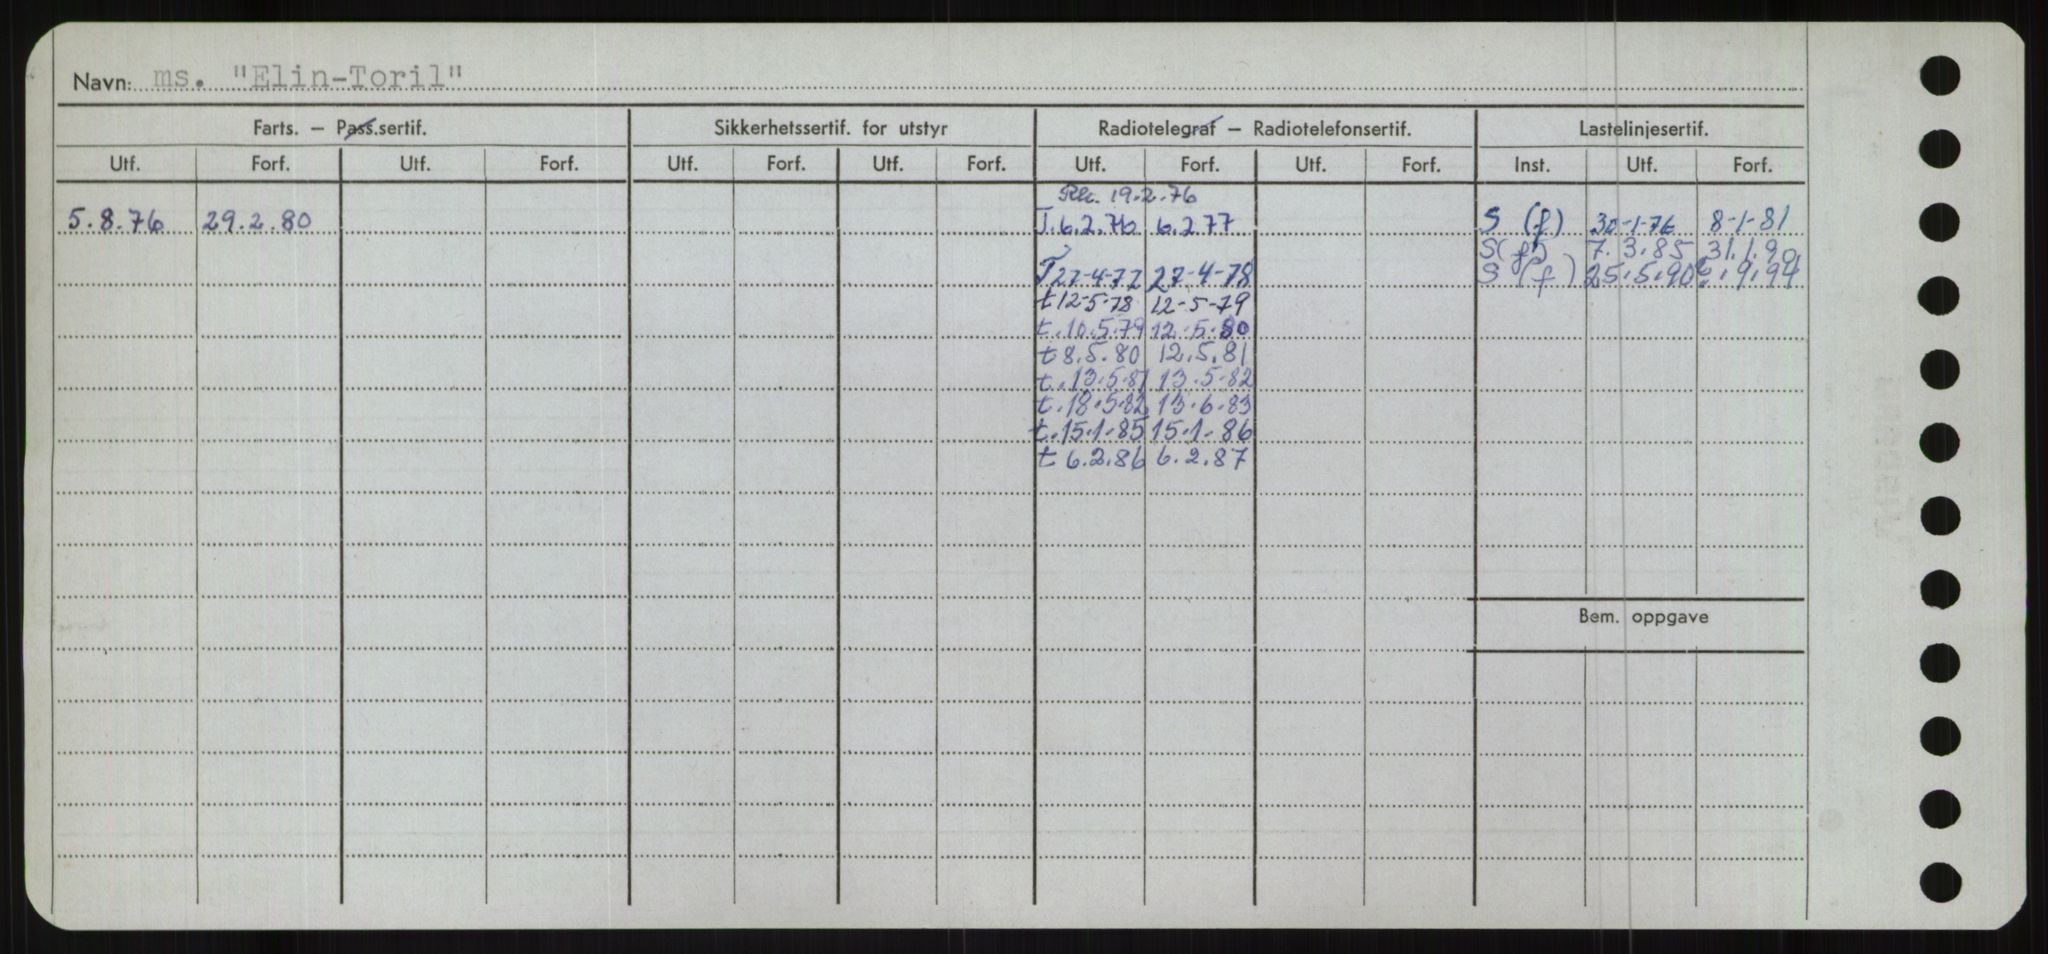 Navn: ms. "Elin-Toril"
Farts. – Pass.sertif. Sikkerhetssertif. for utstyr Radiotelegraf – Radiotelefonsertif. Lastelinjesertif.
Utf. Forf. Utf. Forf. Utf. Forf. Utf. Forf. Utf. Forf. Utf. Forf. Inst. Utf. Forf.
19.2.76
5.8.76 29.2.80 T.6.2.76 6.2 77 S (f) 30-1-76 8-1-81
S(f) 7.3.85 31.1.90
T 27-4-77 27-4-78 S (f) 25.5.90 6.9.94
t 12-5-78 12-5-79
t.10.5.79 12.5.80
t 8.5.80 12.5.81
t.13.5.81 13.5.82
t.18.5.82 13.6.83
t.15.1.85 15.1.86
t 6.2.86 6.2.87
Bem. oppgave